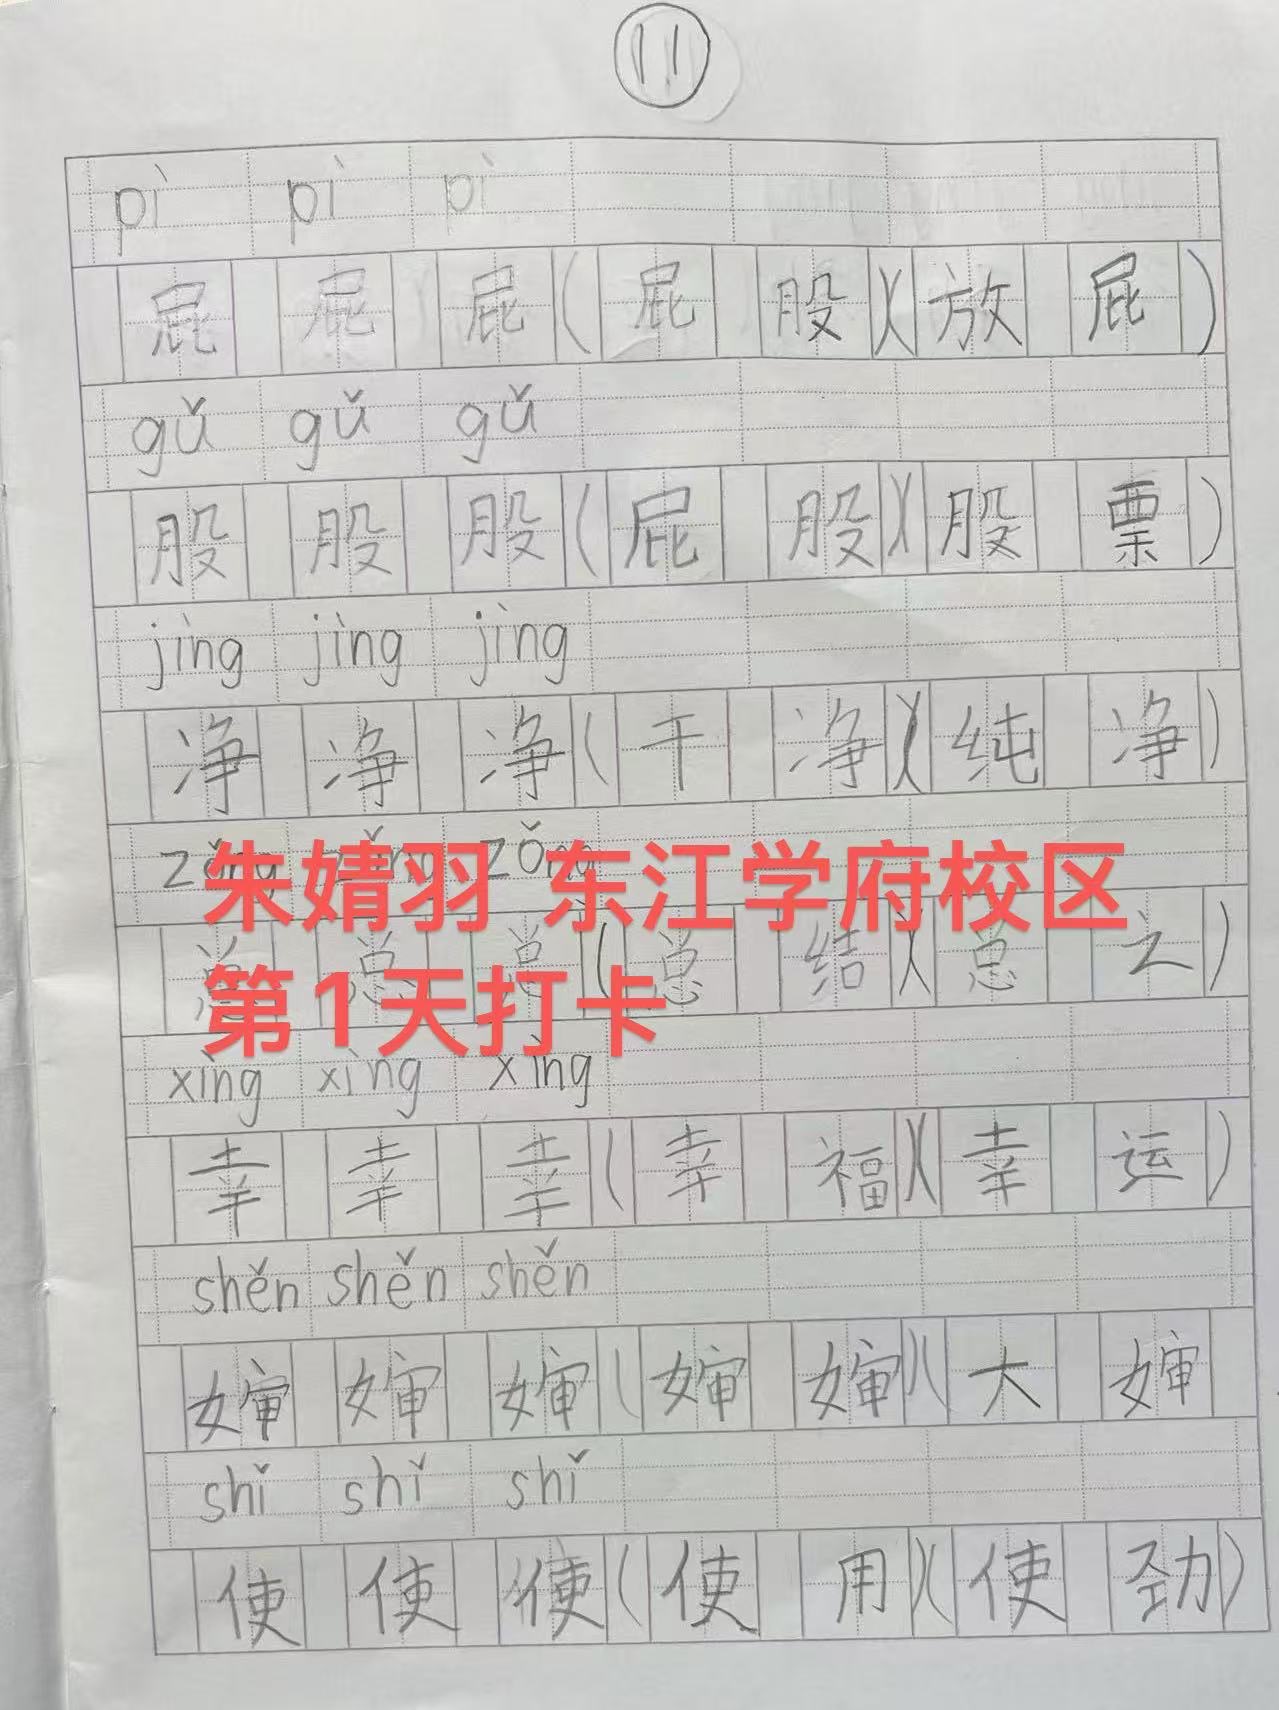 11
pì pì pì
屁 屁 屁 ( 屁 股 )( 放 屁 )
gǔ gǔ gǔ
股 股 股 ( 屁 股 )( 股 票 )
jìng jìng jìng
净 净 净 ( 干 净 )( 纯 净 )
zǒng zǒng zǒng
朱婧羽 东江学府校区
总 总 总 ( 总 结 )( 总 之 )
第1天打卡
xìng xìng xìng
幸 幸 幸 ( 幸 福 )( 幸 运 )
shěn shěn shěn
婶 婶 婶 ( 婶 婶 )( 大 婶
shǐ shǐ shǐ
使 使 使 ( 使 用 )( 使 劲 )